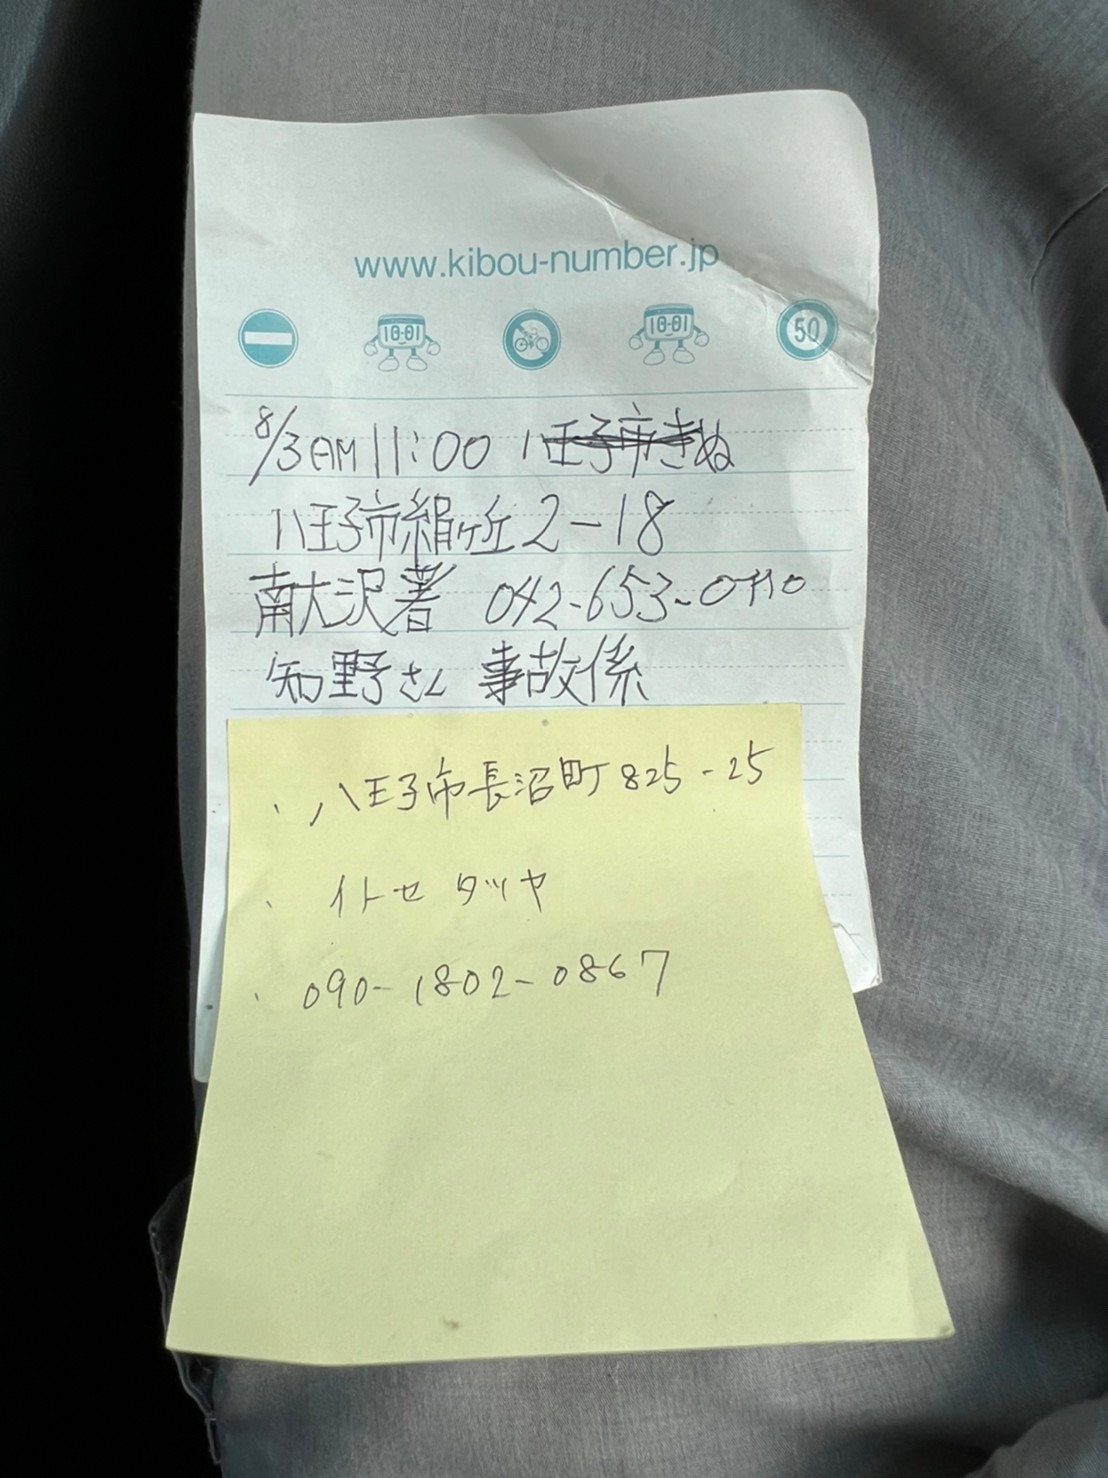 www.kibou-number.jp
10-01 10-01 50
8/3 AM 11:00 八王子市きぬ
八王子市絹ヶ丘2-18
南大沢署 042-653-0110
知野さん 事故係
、八王子市長沼町825-25
、イトセ タツヤ
、090-1802-0867